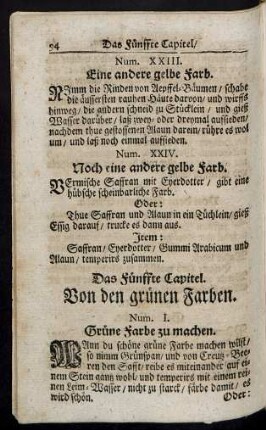 94 Das Fünffte Capitel/
Num. XXIII.
Eine andere gelbe Farb.
NImm die Rinden von Aepffel-Bäumen/ schabe
die äussersten rauhen Häute davon/ und wirffs
hinweg/ die andern schneid zu Stücklein/ und gieß
Wasser darüber/ laß zwey- oder dreymal auffsieden/
nachdem thue gestossenen Alaun darein/ rühre es wol
um/ und laß noch einmal auffsieden.
Num. XXIV.
Noch eine andere gelbe Farb.
VErmische Saffran mit Eyerdotter/ gibt eine
hübsche scheinbarliche Farb.
Oder:
Thue Saffran und Alaun in ein Tüchlein/ gieß
Essig darauf/ trucke es dann aus.
Item:
Saffran/ Eyerdotter/ Gummi Arabicum und
Alaun/ temperirs zusammen.
Das Fünffte Capitel.
Von den grünen Farben.
Num. I.
Grüne Farbe zu machen.
WAnn du schöne grüne Farbe machen willst/
so nimm Grünspan/ und von Creutz-Bee-
ren den Safft/ reibe es miteinander auf ei-
nem Stein gantz wohl/ und temperirs mit einem rei-
nen Leim-Wasser/ nicht zu starck/ färbe damit/ es
wird schön.
Oder: